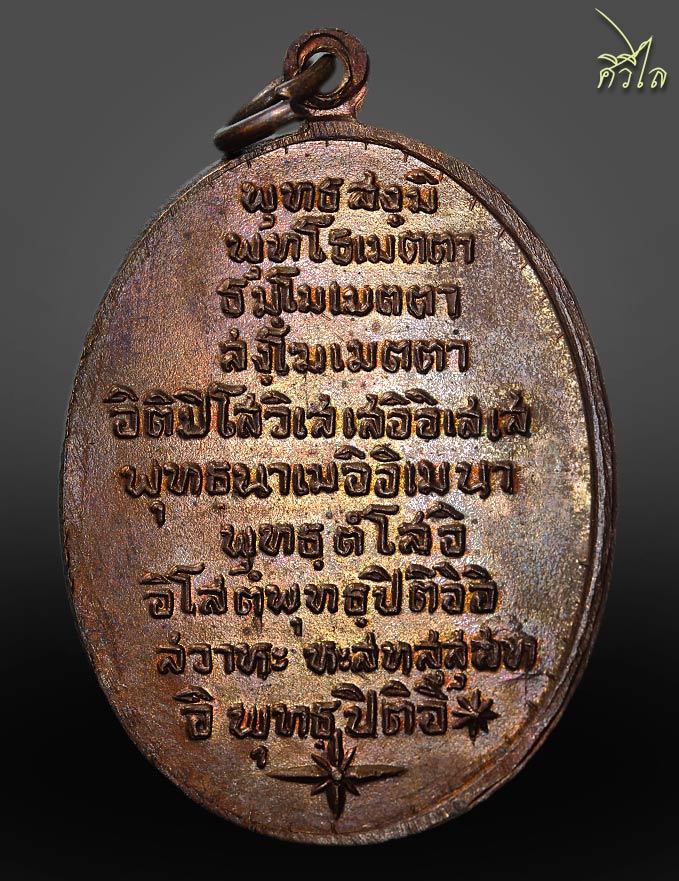 ศิวิไล
พุทธฺสงฺมิ
พุทโธเมตตา
ธมฺโมเมตตา
สงฺโฆเมตตา
อิติปิโสวิเสเสอิอิเสเส
พุทธนาเมอิอิเมนา
พุทธฺตํโสอิ
อิโสตํพุทธฺปิติอิอิ
สวาหะ
อิ พุทธฺปิติอิ